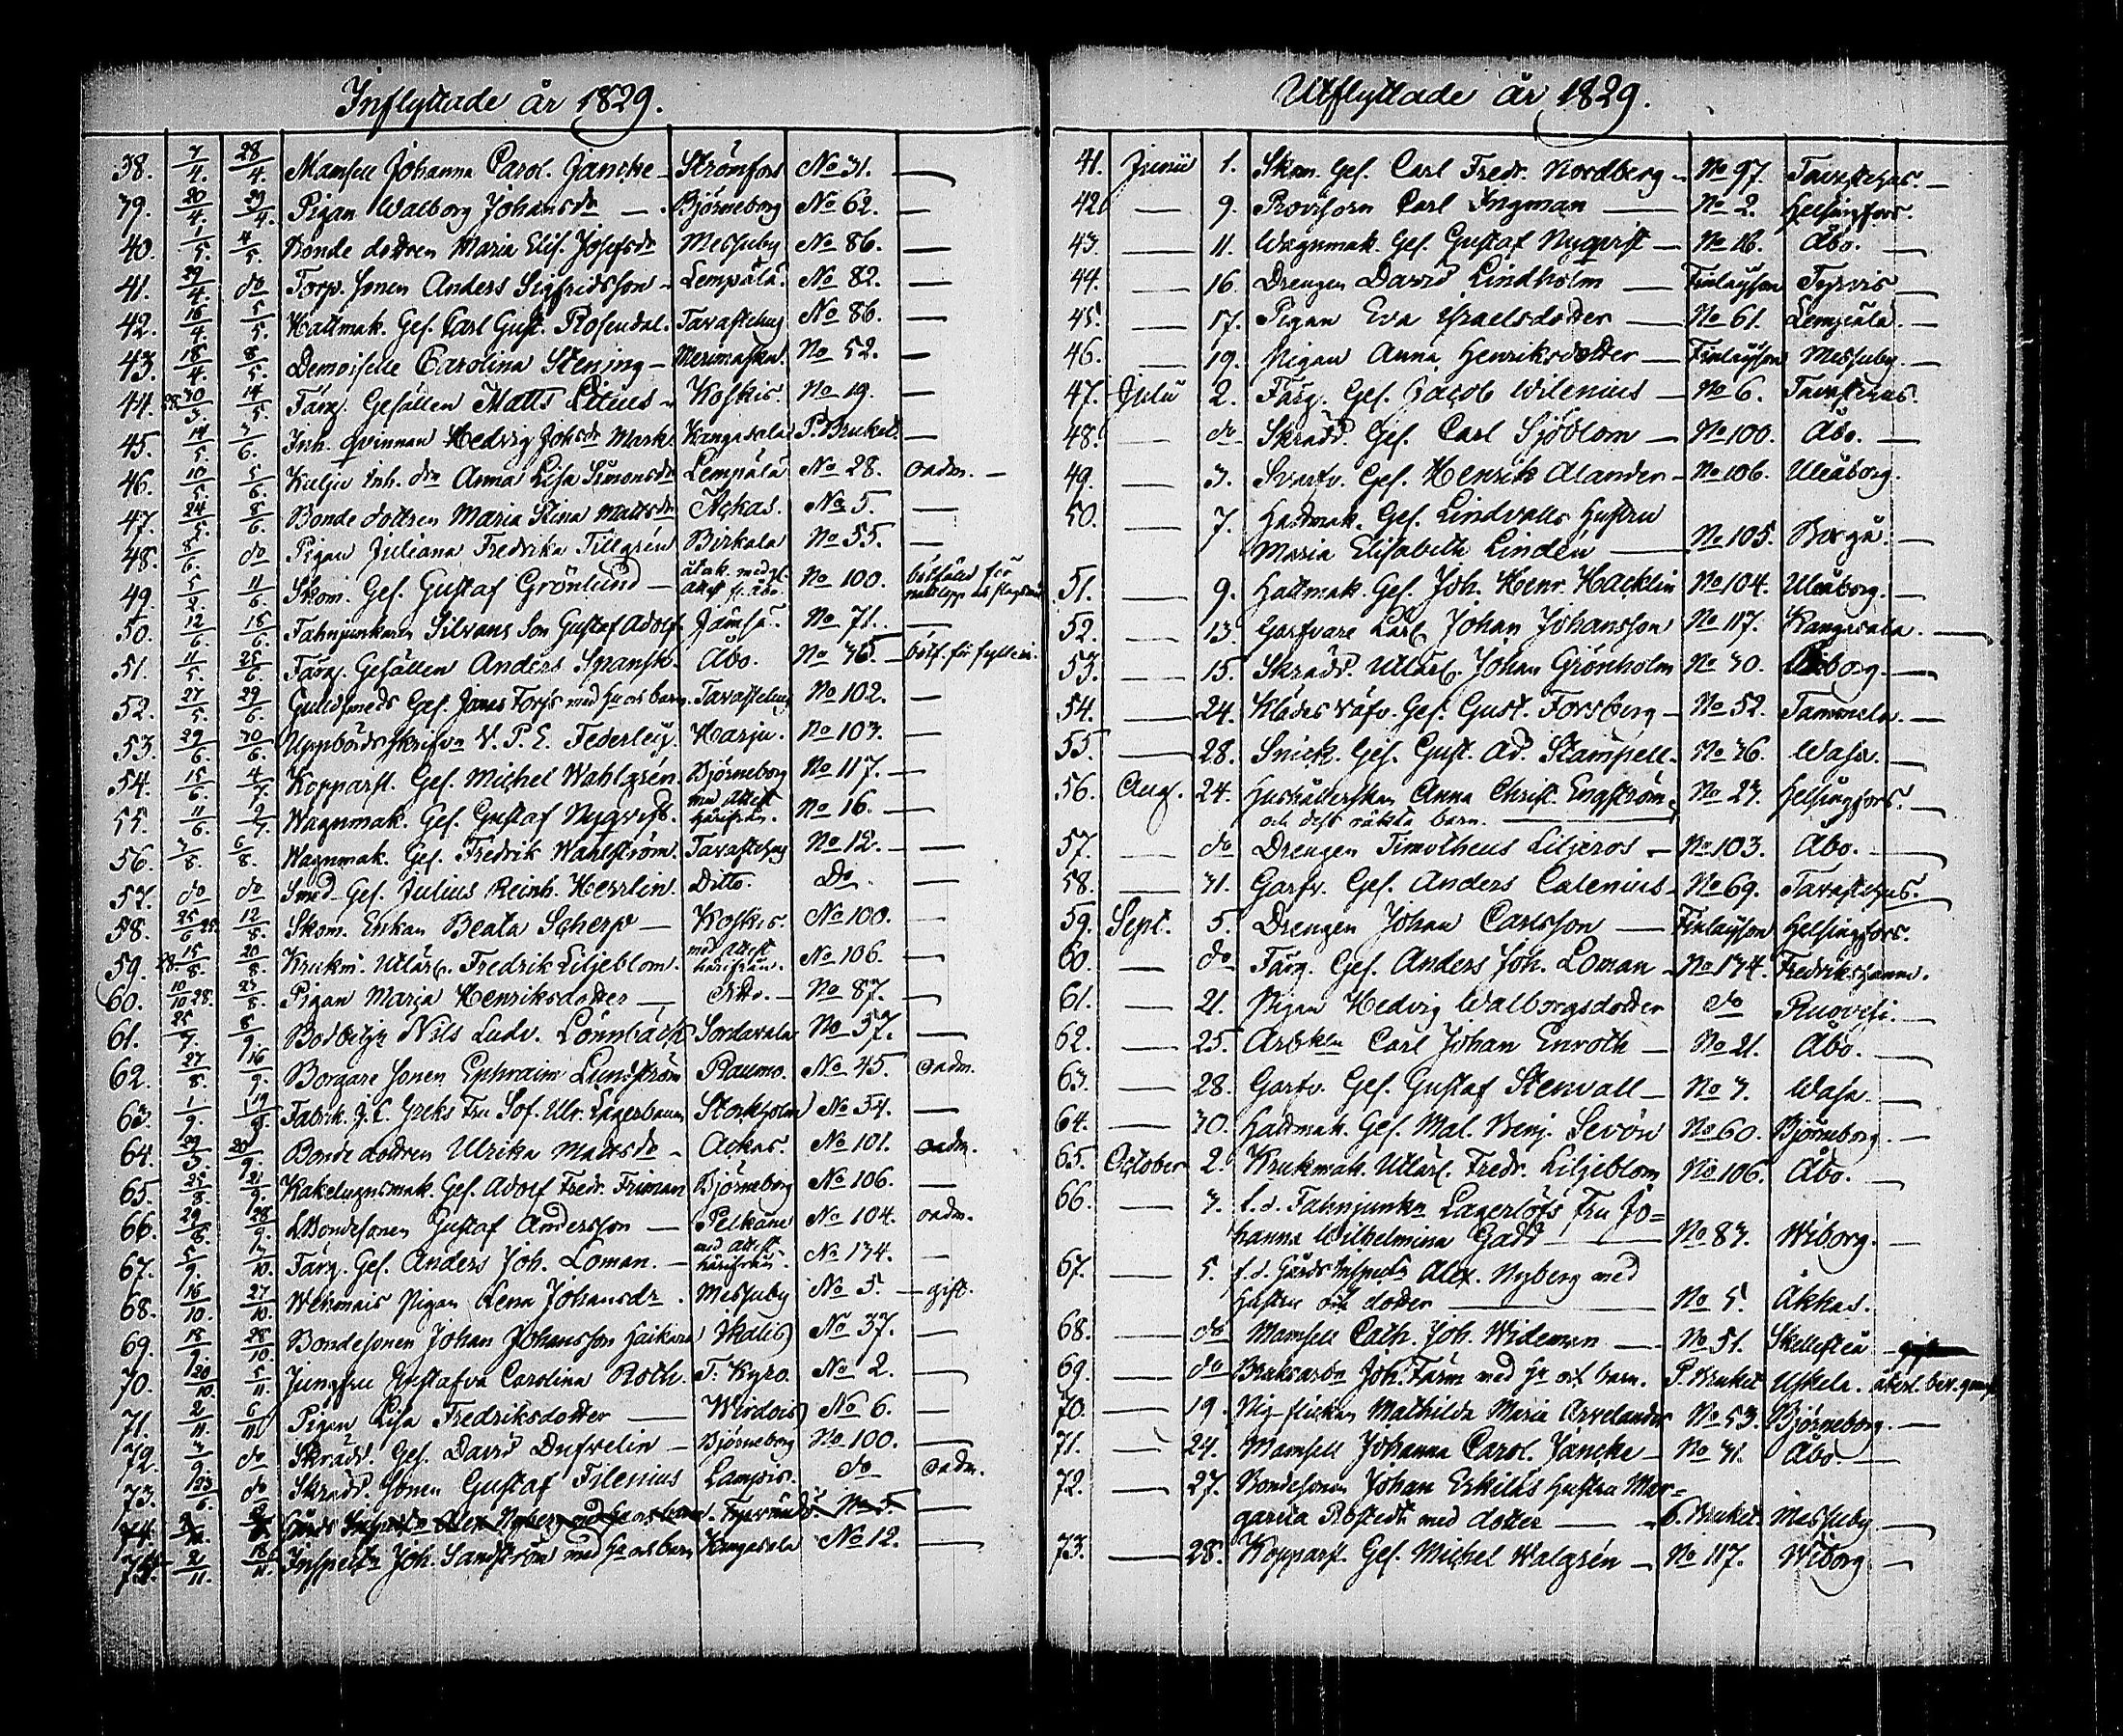 Inflyttade år 1829.
38. 7/4. 28/4. Mamsell Johanna Carol. Jancke - Strömfors No 31. —
39. 20/4. 29/4. Pigan Walborg Johansdr — Björneborg No 62. —
40. 1/5. 4/5. Bonde dottren Maria Elis. Josefsdr Messuby No 86. —
41. 29/4. do Torp. Sonen Anders Sigfridsson - Lempälä. No 82. —
42. 16/4. 5/5. Hattmak. Ges. Carl Gust. Rosendal. Tavastehus No 86. —
43. 18/4. 8/5. Demoiselle Carolina Stening - No 52. —
44. 28. 30/3. 14/5. Färg. Gesällen Matts Litues - Koskis. No 19. —
45. 14/5. 3/6. Inh. qvinnan Hedvig Johsdr Kangasala P. Bruket. —
46. 10/5. 5/6. Inh. dr Anna Lisa Simonsdr Lempälä No 28. oadm. —
47. 24/5. 8/6. Bonde dottren Maria Stina Mattsdr Ackas. No 5. —
48. 8/6. do Pigan Juliana Fredrika Tillgrén Birkala No 55. —
49. 5/2. 11/6. Skom. Ges. Gustaf Grönlund — attest fr. Åbo. No 100. bötfäld för
50. 12/6. 15/6. Fahnjunkaren Silvans Son Gustaf Adolf Jämsä. No 71. —
51. 11/5. 25/6. Färg. Gesällen Anders Spansk. Åbo. No 36. — bötf. för fylleri.
52. 27/5. 29/6. Guldsmeds Ges. Jonas Forss med hu och barn. Tavastehus No 102. —
53. 29/6. 30/6. Uppbördsskrifvn V. P. E. Federley. Harju. No 103. —
54. 15/6. 4/7. Kopparsl. Ges. Michel Wahlgrén. Björneborg No 117. —
55. 11/6. 9/7. Wagnmak. Ges. Gustaf Nyqvist. med attest härifrån. No 16. —
56. 3/8. 6/8. Wagnmak. Ges. Fredrik Wahlström. Tavastehus No 12. —
57. do do Smed Ges. Julius Reinh. Herrlin. Ditto. Do. —
58. 25/6 28. 12/8. Skom. Enkan Beata Scherp — Koskis. No 100. —
59. 28. 15/8. 20/8. Krukm. Utlärl. Fredrik Liljeblom. med attest härifrån. No 106. —
60. 10/10 28. 23/8. Pigan Maria Henriksdotter — No 87. —
61. 25/7. 8/9. Nils Ludv. Lönnbäck Sordavala No 37. —
62. 27/8. 16/9. Borgare Sonen Ephraim Lundström Raumo. No 45. oadm.
63. 1/9. 19/9. Fabrik. Fru Sof. Ulr. Lagerbaum Stockholm No 34. —
64. 29/3. 20/9. Bonde dottren Ulrika Mattsdr - Ackas. No 101. oadm.
65. 25/8. 21/9. Kakelugnsmak. Ges. Adolf Fredr. Friman Björneborg No 106. —
66. 29/8. 28/9. Bondesonen Gustaf Andersson — Pelkäne No 104. oadm.
67. 5/9. 3/10. Färg. Ges. Anders Joh. Loman. — med attest härifrån. No 134. —
68. 16/10. 27/10. Wehmais Pigan Lena Johansdr. Messuby No 5. — gift.
69. 18/9. 28/10. Bondesonen Johan Johansson Haikara Ikalis No 37. —
70. 20/10. 5/11. Jungfru Gustafva Carolina Roth. T. Kyro. No 2. —
71. 2/11. 6/11. Pigan Lisa Fredriksdotter — Wirdois No 6. —
72. 3/9. do Skrädd. Ges. David Dufvelin — Björneborg No 100. —
73. 23/6. do Skrädd. Sonen Gustaf Filenius Lampis. do oadm.
74. Gårds Inspectn Alex Nyberg med hu och barn. No 5. —
74. 2/11. 18/11. Inspectn Joh. Sandström med hu och barn Kangasala No 12. —
Utflyttade år 1829.
41. Junii 1. Skom. Ges. Carl Fredr. Nordberg - No 97. Tavastehus. —
42. — 9. Provisorn Carl Ingman — No 2. Helsingfors.
43. — 11. Wagnmak. Ges. Gustaf Nyqvist — No 16. Åbo. —
44. — 16. Drengen David Lindholm — Finlayson Tyrvis —
45. — 17. Pigan Eva Israelsdotter — No 61. Lempälä. —
46. — 19. Pigan Anna Henriksdotter — Finlayson Messuby. —
47. Julii 2. Färg. Ges. Jacob Wilenius — No 6. Tavastehus.
48. — do Skrädd. Ges. Carl Sjöblom — No 100. Åbo. —
49. — 3. Svarfv. Ges. Henrik Alander - No 106. Uleåborg.
50. — 7. Hattmak. Ges. Lindvalls Hustru
Maria Elisabeth Lindén — No 105. Borgå. —
51. — 9. Hattmak. Ges. Joh. Henr. Hacklin No 104. Uleåborg. —
52. — 13. Garfvare Lärl. Johan Johansson No 117. Kangasala. —
53. — 15. Skrädd. Utlärl. Johan Grönholm No 30. —
54. — 24. Klädesväfv. Ges. Gust. Forsberg — No 52. Tammela. —
55. — 28. Snick. Ges. Gust. Ad. Stampell. No 36. Wasa. —
56. Aug. 24. Hushållerskan Anna Christ. Engström No 23. Helsingfors. —
och dess oäkta barn. —
57. — do Drengen Timotheus Liljeros — No 103. Åbo. —
58. — 31. Garfv. Ges. Anders Calenius - No 69. Tavastehus. —
59. Sept. 5. Drengen Johan Carlsson — Finlayson Helsingfors.
60. — do Färg. Ges. Anders Joh. Loman — No 134. Fredrikshamn.
61. — 21. Pigan Hedvig Walborgsdotter do Ruovesi. —
62. — 25. Arbkln Carl Johan Enroth — No 21. Åbo. —
63. — 28. Garfv. Ges. Gustaf Stenvall — No 3. Wasa. —
64. — 30. Hattmak. Ges. Mal. Benj. Sevón No 60. Björneborg. —
65. October 2. Krukmak. Utlärl. Fredr. Liljeblom No 106. Åbo. —
66. — 3. f. d. Fahnjunkn Lagerlöfs Fru Jo=
hanna Wilhelmina Gadd — No 83. Wiborg. —
67. — 5. f. d. Gårds Inspectn Alex. Nyberg med
Hustru och dotter — No 5. Akkas.
68. — do Mamsell Cath. Joh. Wideman — No 51. Skellefteå —
69. — do Joh. Färm med hu och barn. P. Bruket Uskela.
70. — 19. Mathilda Maria Arvelander No 53. Björneborg. —
71. — 24. Mamsell Johanna Carol. Jancke — No 31. Åbo. —
72. — 27. Bondesonen Johan Eskilas Hustru Mar=
gareta Robstedt med dotter — P. Bruket Messuby —
73. — 28. Kopparsl. Ges. Michel Walgrén — No 117. Wiborg. —